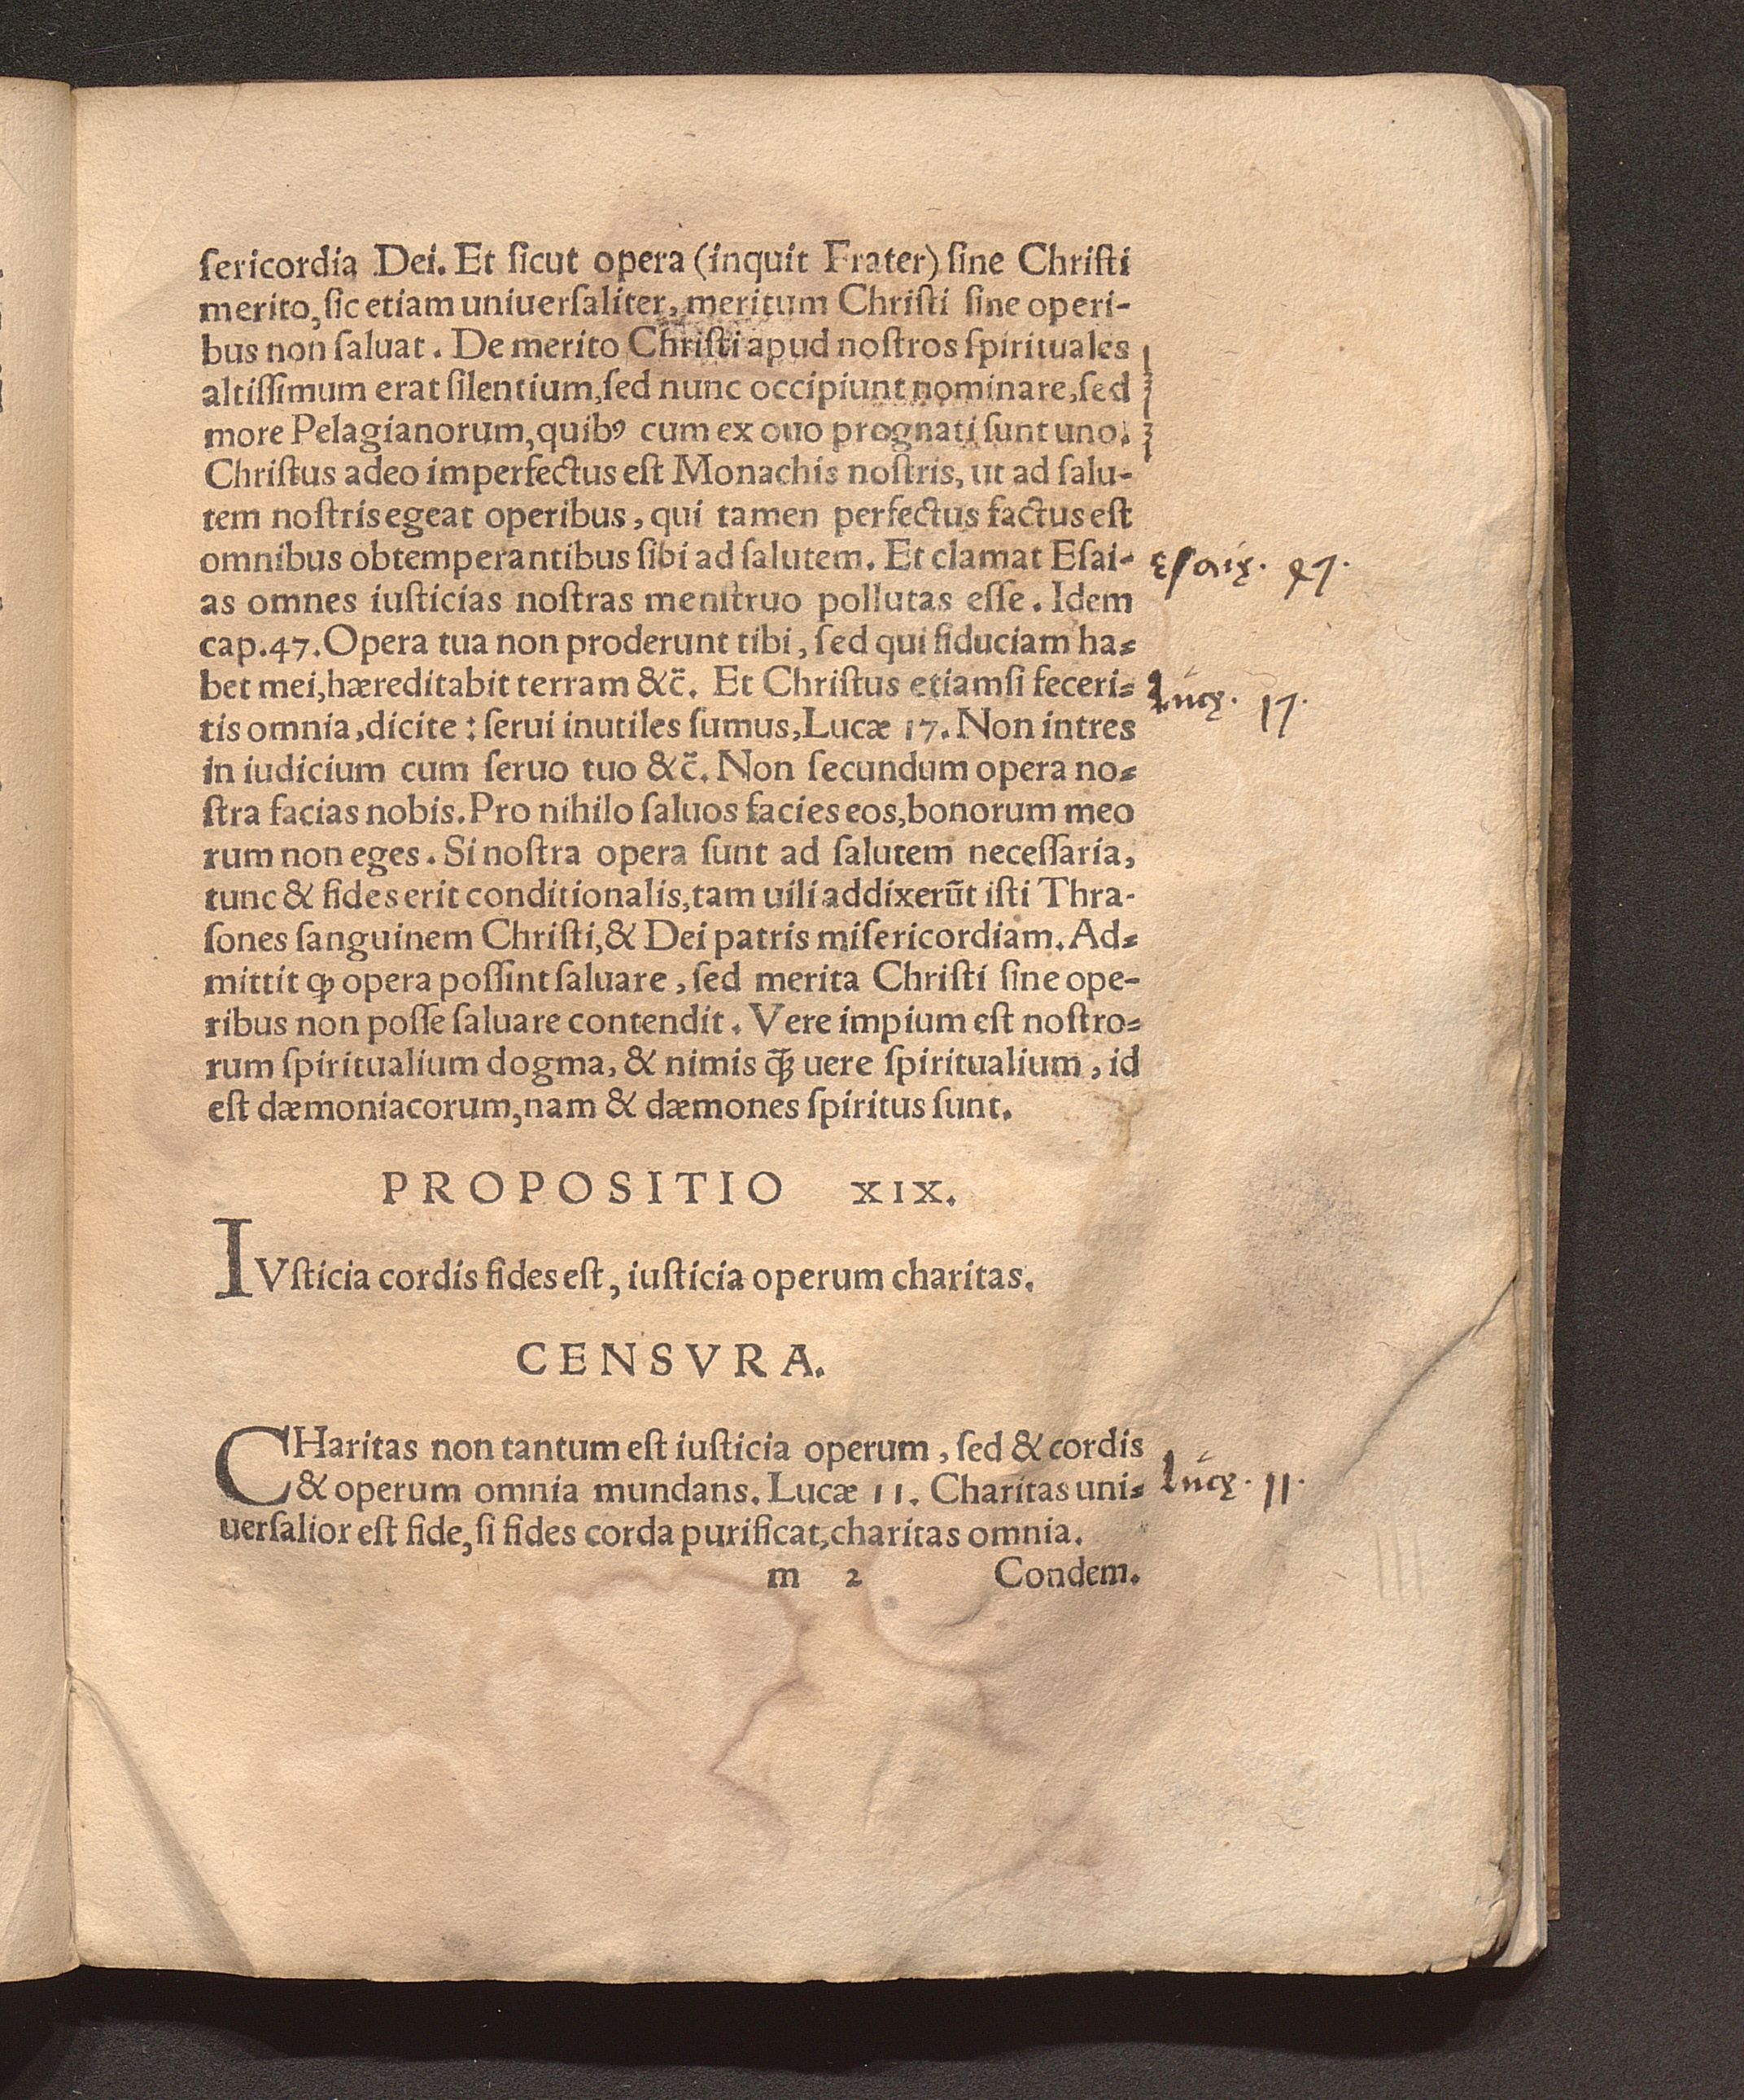 ſericordia Dei. Et ſicut opera (inquit Frater) ſine Chriſti
merito, ſic etiam uniuerſaliter, meritum Chriſti ſine operi-
bus non ſaluat. De merito Chriſti apud noſtros ſpirituales
altiſſimum erat ſilentium, ſed nunc occipiunt nominare, ſed
more Pelagianorum, quibꝰ cum ex ouo prognati ſunt uno.
Chriſtus adeo imperfectus eſt Monachis noſtris, ut ad ſalu-
tem noſtris egeat operibus, qui tamen perfectus factus eſt
omnibus obtemperantibus ſibi ad ſalutem. Et clamat Eſai-
Eſaię. 47.
as omnes iuſticias noſtras menſtruo pollutas eſſe. Idem
cap. 47. Opera tua non proderunt tibi, ſed qui fiduciam ha-
bet mei, hæreditabit terram &c̄. Et Chriſtus etiamſi feceri-
Lucę. 17.
tis omnia, dicite: ſerui inutiles ſumus, Lucæ 17. Non intres
in iudicium cum ſeruo tuo &c̄. Non ſecundum opera no-
ſtra facias nobis. Pro nihilo ſaluos facies eos, bonorum meo
rum non eges. Si noſtra opera ſunt ad ſalutem neceſſaria,
tunc & fides erit conditionalis, tam uili addixerūt iſti Thra-
ſones ſanguinem Chriſti, & Dei patris miſericordiam. Ad-
mittit ꝙ opera poſſint ſaluare, ſed merita Chriſti ſine ope-
ribus non poſſe ſaluare contendit. Vere impium eſt noſtro-
rum ſpiritualium dogma, & nimis ꝙ̄ uere ſpiritualium, id
eſt dæmoniacorum, nam & dæmones ſpiritus ſunt.
PROPOSITIO XIX.
IVſticia cordis fides eſt, iuſticia operum charitas.
CENSVRA.
CHaritas non tantum eſt iuſticia operum, ſed & cordis
& operum omnia mundans. Lucæ 11. Charitas uni-
Lucę. 11.
uerſalior eſt fide, ſi fides corda purificat, charitas omnia.
m 2 Condem.